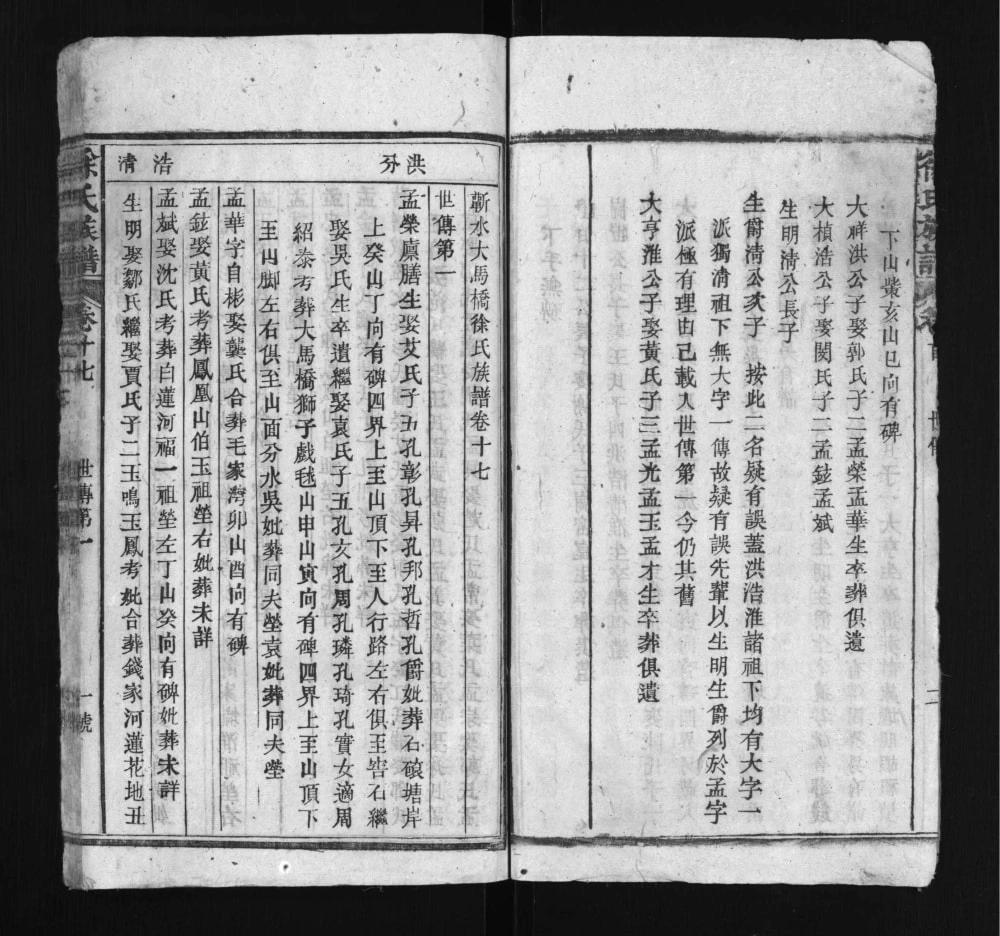 下山紫亥山巳向有碑
大祥洪公子娶郭氏子二孟榮孟華生卒葬俱遺
大楨浩公子娶閔氏子二孟鉉孟斌
生明淸公長子
生爵淸公次子　按此二名疑有誤蓋洪浩淮諸祖下均有大字一
派獨淸祖下無大字一傳故疑有誤先輩以生明生爵列於孟字
派極有理由已載入世傳第一今仍其舊
大亨淮公子娶黃氏子三孟光孟玉孟才生卒葬俱遺
蘄水大馬橋徐氏族譜卷十七
世傳第一
洪分
孟榮廩膳生娶艾氏子五孔彰孔昇孔邦孔哲孔爵妣葬石磙塘岸
上癸山丁向有碑四界上至山頂下至人行路左右俱至峇石繼
娶吳氏生卒遺繼娶袁氏子五孔文孔周孔璘孔琦孔實女適周
紹泰考葬大馬橋獅子戲毬山申山寅向有碑四界上至山頂下
至山脚左右俱至山面分水吳妣葬同夫塋袁妣葬同夫塋
孟華字自彬娶龔氏合葬毛家灣卯山酉向有碑
浩
孟鉉娶黃氏考葬鳳凰山伯玉祖塋右妣葬未詳
孟斌娶沈氏考葬白蓮河福一祖塋左丁山癸向有碑妣葬未詳
淸
生明娶鄒氏繼娶賈氏子二玉鳴玉鳳考妣合葬錢家河蓮花地丑
徐氏族譜
卷十七
世傳第一
一號